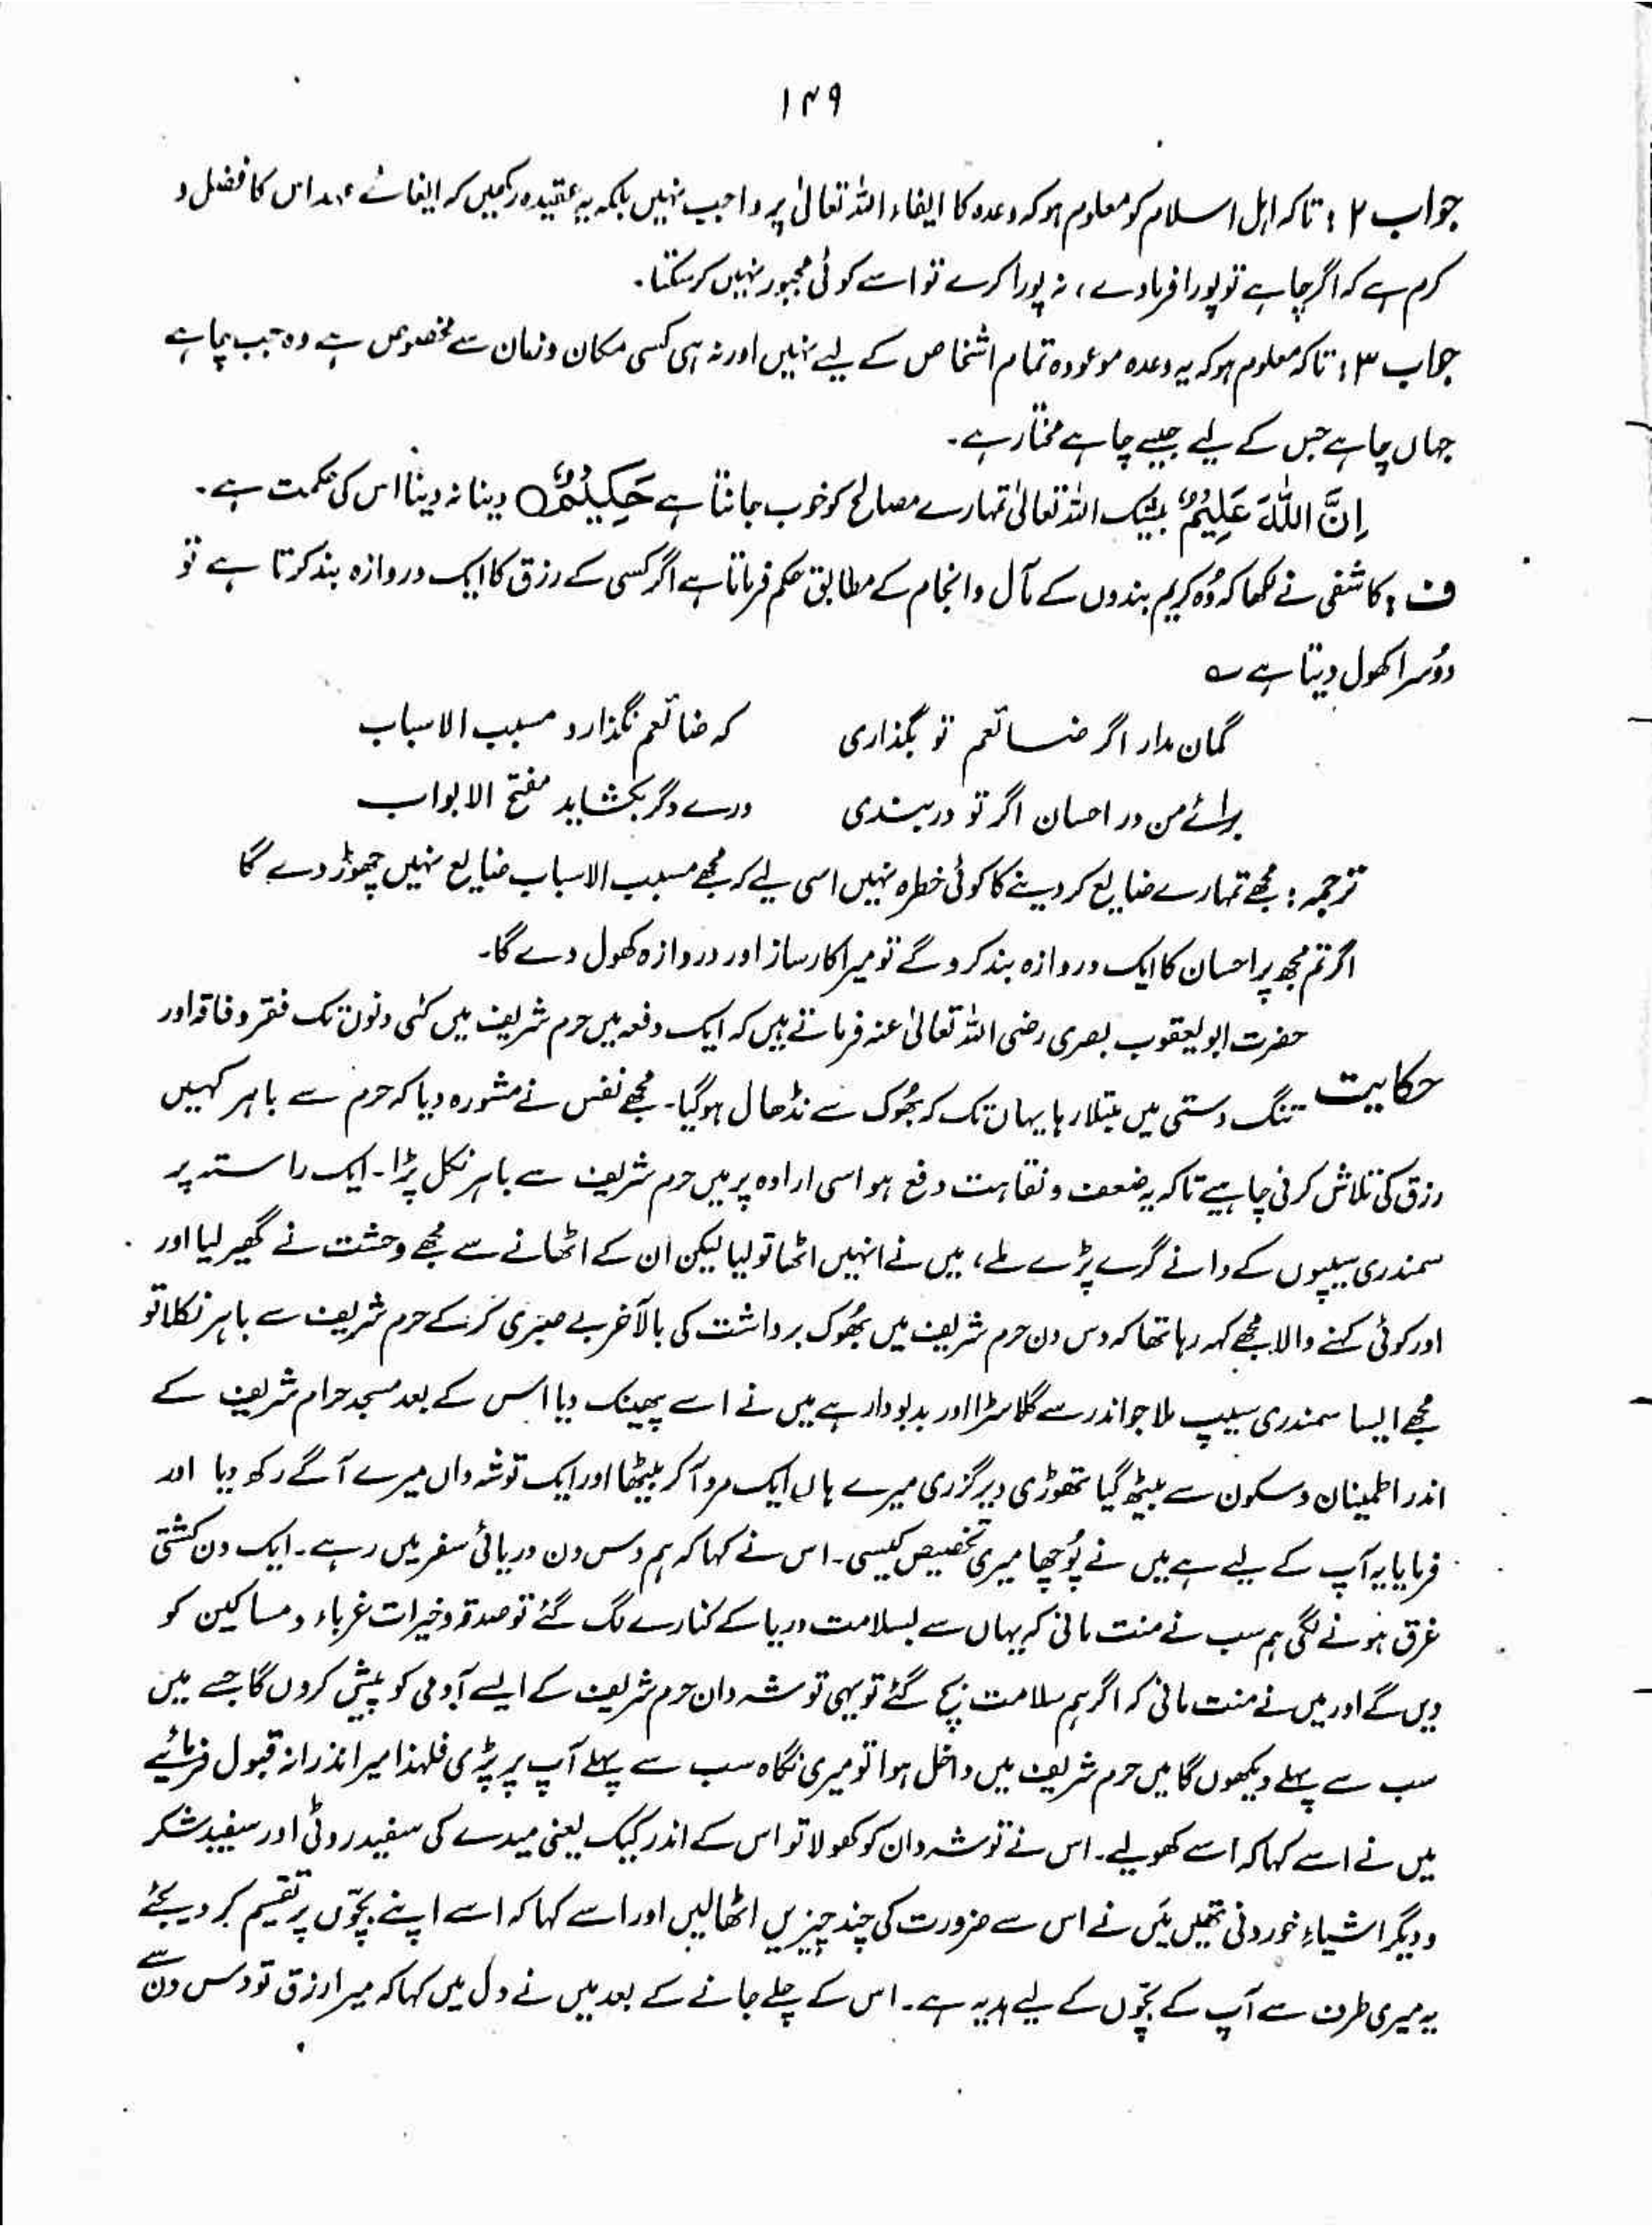 ۱۴۹
جواب ۲ : تاکہ اہل اسلام کو معلوم ہو کہ وعدہ کا ایفاء اللہ تعالیٰ پر واجب نہیں بلکہ یہ عقیدہ رکھیں کہ ایفائے عہد اس کا فضل و
کرم ہے کہ اگر چاہے تو پورا فرما دے ، نہ پورا کرے تو اسے کوئی مجبور نہیں کر سکتا ۔
جواب ۳ : تاکہ معلوم ہو کہ یہ وعدہ موعودہ تمام اشخاص کے لیے نہیں اور نہ ہی کسی مکان و زمان سے مخصوص ہے وہ جب چاہے
جہاں چاہے جس کے لیے جیسے چاہے مختار ہے ۔
اِنَّ اللّٰهَ عَلِیْمٌ بیشک اللہ تعالیٰ تمہارے مصالح کو خوب جانتا ہے حَکِیْمٌ دینا نہ دینا اس کی حکمت ہے ۔
ف : کاشفی نے لکھا کہ وُہ کریم بندوں کے مآل و انجام کے مطابق حکم فرماتا ہے اگر کسی کے رزق کا ایک دروازہ بند کرتا ہے تو
دُوسرا کھول دیتا ہے ؎
گمان مدار اگر ضائعم تو بگذاری کہ ضائعم نگذارد مسبب الاسباب
برائے من در احسان اگر تو در بندی درے دگر بکشاید مفتح الابواب
ترجمہ : مجھے تمہارے ضایع کر دینے کا کوئی خطرہ نہیں اسی لیے کہ مجھے مسبب الاسباب ضایع نہیں چھوڑ دے گا
اگر تم مجھ پر احسان کا ایک دروازہ بند کرو گے تو میرا کارساز اور دروازہ کھول دے گا۔
حضرت ابو یعقوب بصری رضی اللہ تعالیٰ عنہ فرماتے ہیں کہ ایک دفعہ میں حرم شریف میں کئی دنوں تک فقر و فاقہ اور
حکایت تنگ دستی میں مبتلا رہا یہاں تک کہ بھُوک سے نڈھال ہو گیا۔ مجھے نفس نے مشورہ دیا کہ حرم سے باہر کہیں
رزق کی تلاش کرنی چاہیے تاکہ یہ ضعف و نقاہت دفع ہو اسی ارادہ پر میں حرم شریف سے باہر نکل پڑا۔ ایک راستہ پر
سمندری سیپیوں کے دانے گرے پڑے ملے، میں نے انہیں اٹھا تو لیا لیکن ان کے اٹھانے سے مجھے وحشت نے گھیر لیا اور
اور کوئی کہنے والا مجھے کہہ رہا تھا کہ دس دن حرم شریف میں بھُوک برداشت کی بالآخر بے صبری کر کے حرم شریف سے باہر نکلا تو
مجھے ایسا سمندری سیپ ملا جو اندر سے گلا سڑا اور بدبودار ہے میں نے اسے پھینک دیا اس کے بعد مسجد حرام شریف کے
اندر اطمینان و سکون سے بیٹھ گیا تھوڑی دیر گزری میرے ہاں ایک مرد آ کر بیٹھا اور ایک توشہ دان میرے آگے رکھ دیا اور
فرمایا یہ آپ کے لیے ہے میں نے پُوچھا میری تخصیص کیسی۔ اس نے کہا کہ ہم دس دن دریائی سفر میں رہے۔ ایک دن کشتی
غرق ہونے لگی ہم سب نے منت مانی کہ یہاں سے بسلامت دریا کے کنارے لگ گئے تو صدقہ و خیرات غرباء و مساکین کو
دیں گے اور میں نے منت مانی کہ اگر ہم سلامت بچ گئے تو یہی توشہ دان حرم شریف کے ایسے آدمی کو پیش کروں گا جسے میں
سب سے پہلے دیکھوں گا میں حرم شریف میں داخل ہوا تو میری نگاہ سب سے پہلے آپ پر پڑی فلہٰذا میرا نذرانہ قبول فرمائیے
میں نے اسے کہا کہ اسے کھولیے۔ اس نے توشہ دان کو کھولا تو اس کے اندر کیک یعنی میدے کی سفید روٹی اور سفید شکر
و دیگر اشیاءِ خوردنی تھیں میَں نے اس سے ضرورت کی چند چیزیں اٹھا لیں اور اسے کہا کہ اسے اپنے بچّوں پر تقسیم کر دیجئے
یہ میری طرف سے آپ کے بچّوں کے لیے ہدیہ ہے۔ اس کے چلے جانے کے بعد میں نے دل میں کہا کہ میرا رزق تو دس دن سے